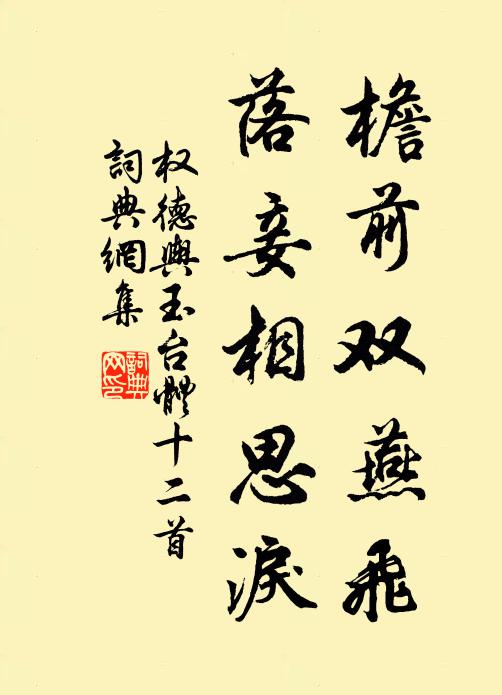 檐前双燕飛
落妾相思淚
权德輿玉台體十二首
詞典網集
詞典
网印